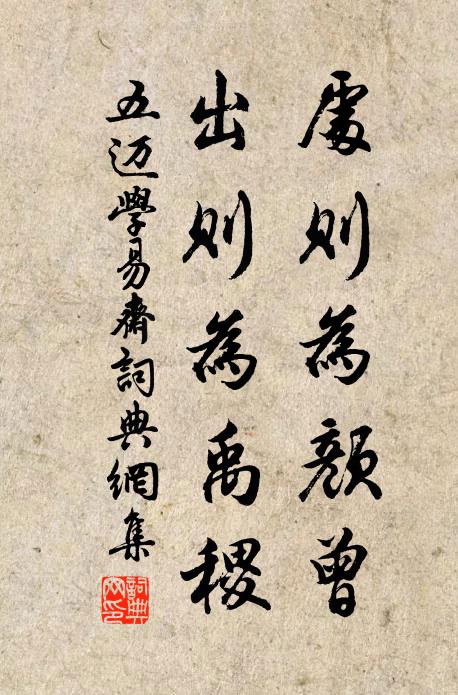 處則為顏曾
出則為禹稷
五迈學易齋詞典網集
詞典网印